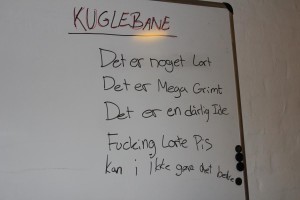 KUGLEBANE
Det er noget Lort
Det er Mega Grimt
Det er en dårlig Ide
Fucking Lorte Pis
Kan i Ikke gøre det bedre